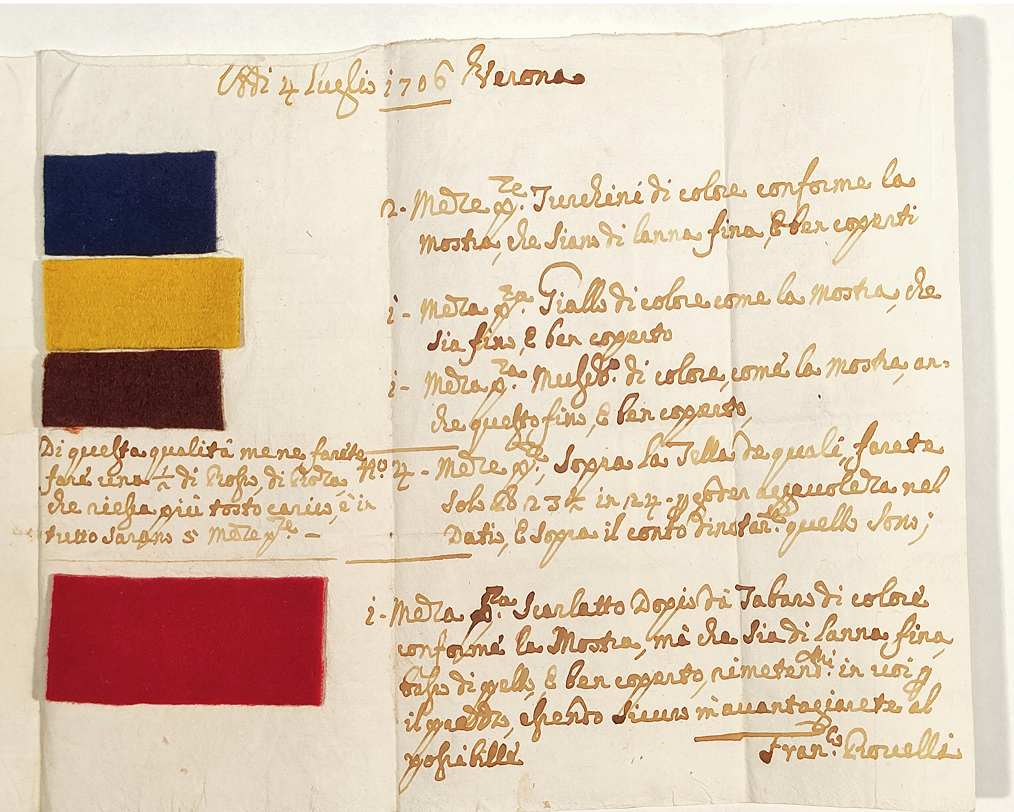 Addi 4 Luglio 1706 Verona
2- Meze pze. Turchine di colore conforme la
mostra, che siano di lanna fina, e ben coperti
i- Meza pza. Giallo di colore come la mostra, che
sia fino, e ben coperto
i- Meza pza. di colore, come la mostra, an=
che questo fino, e ben coperto,
Di questa qualità me ne farete
fare una ½ di Rosso, di
che riessa più tosto carico, è in
tutto sarano 5 Meze pze. -
No. 4 - Meze pze. sopra la Tella de quali, farete
solo 23½ in 24 - nel
Dati, e sopra il conto quello sono;
i- Meza pza. Scarlatto Dopio da Tabaro di colore
conforme la Mostra, mà che sia di lanna fina,
basso di pello, e ben coperto, in voi p
il prezzo, essendo sicuro m'avantagiarete al
possibille
Franco. Rovelli